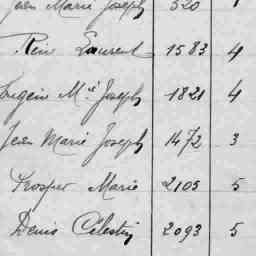 Jean Marie Joseph 520
René Laurent 1583 4
Eugein Mie Joseph 1821 4
Jean Marie Joseph 1472 3
Prosper Marie 2105 5
Denis Célestin 2093 5